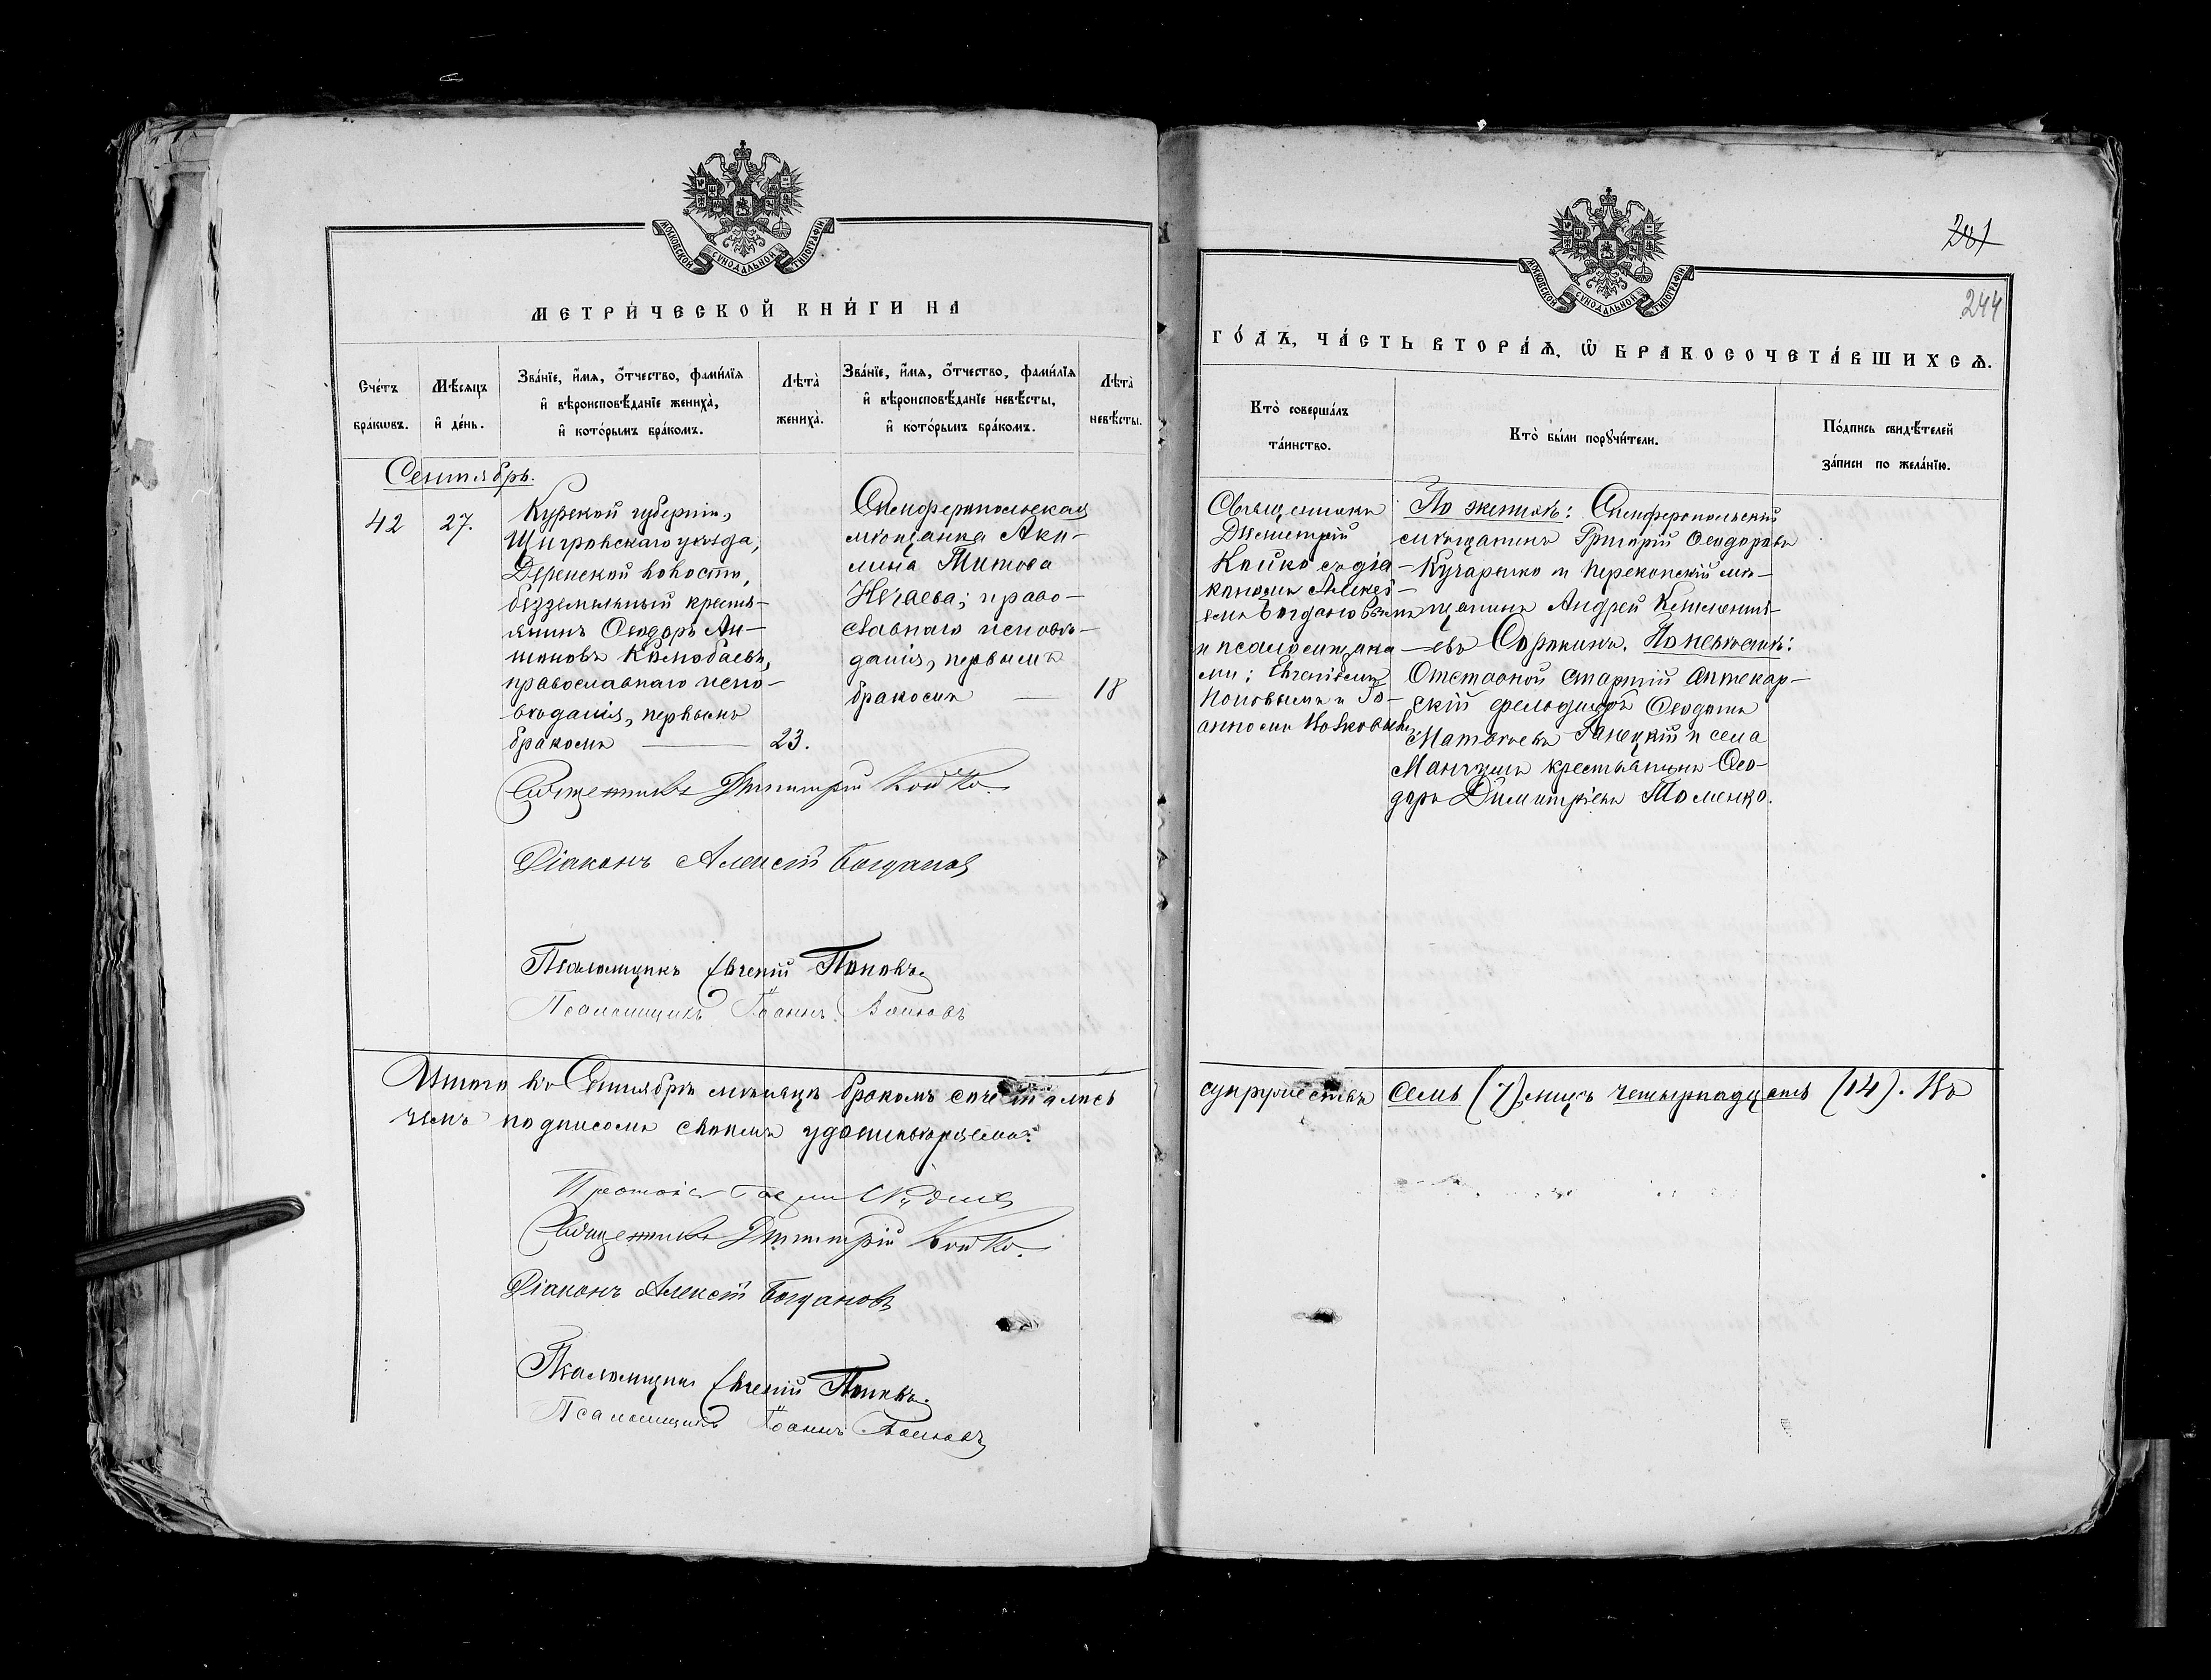 МОСКОВСКОЙ СѴНОДАЛЬНОЙ ТИПОГРАФІИ
МЕТРИ́ЧЕСКОЙ КНИ́ГИ НА
Сче́тъ бра́кѡвъ.
Мѣ́сяцъ и҆ де́нь.
Зва́нїе, и҆́мя, ѻ҆́тчество, фами́лїя
и҆ вѣроисповѣ́данїе жениха̀,
и҆ кото́рымъ бра́комъ.
Лѣта̀ жениха̀.
Зва́нїе, и҆́мя, ѻ҆́тчество, фами́лїя
и҆ вѣроисповѣ́данїе невѣ́сты,
и҆ кото́рымъ бра́комъ.
Лѣта̀ невѣ́сты.
Сентябрь.
42
27.
Курской губерніи,
Щигровскаго уѣзда,
волости,
безземельный кресть-
янинъ Ѳеодоръ Ан-
тоновъ
православнаго испо-
вѣданія, первымъ
бракомъ — 23.
Симферопольская
мѣщанка Аки-
лина Титова
Нечаева; право-
славнаго исповѣ-
данія, первымъ
бракомъ — 18
Священникъ Димитрій Койко.
Діаконъ Алексій Богдановъ
Псаломщикъ Евгеній Поповъ
Псаломщикъ Іоаннъ Волковъ
Итого въ Сентябрѣ мѣсяцѣ бракомъ сочеталось
чемъ подписомъ своимъ удостовѣряемъ:
Священникъ Димитрій Койко.
Діаконъ Алексій Богдановъ
Псаломщикъ Евгеній Поповъ.
Псаломщикъ Іоаннъ Волковъ
201
244
МОСКОВСКОЙ СѴНОДАЛЬНОЙ ТИПОГРАФІИ
ГО́ДЪ, ЧА́СТЬ ВТОРА́Я, Ѡ҆ БРАКОСОЧЕТА́ВШИХСЯ.
Кто̀ соверша́лъ
та́инство.
Кто̀ бы́ли порꙋчи́тели.
По́дпись свидѣ́телей
за́писи по жела́нїю.
Священникъ
Димитрій
Койко съ діа-
кономъ Алексѣ-
емъ Богдановымъ
и псаломщика-
ми: Евгеніемъ
Поповымъ и Іо-
анномъ Волковымъ
По женихѣ: Симферопольскій
мѣщанинъ Григорій Ѳеодоровъ
и Перекопскій мѣ-
щанинъ Андрей Климентъ-
евъ Сорокинъ. По невѣстѣ:
Отставной старшій аптекар-
скій фельдшеръ
Матвѣевъ и села
Мангушъ крестьянинъ Ѳео-
доръ Димитріевъ Томенко.
супружествъ семь (7), лицъ четырнадцать (14). Въ